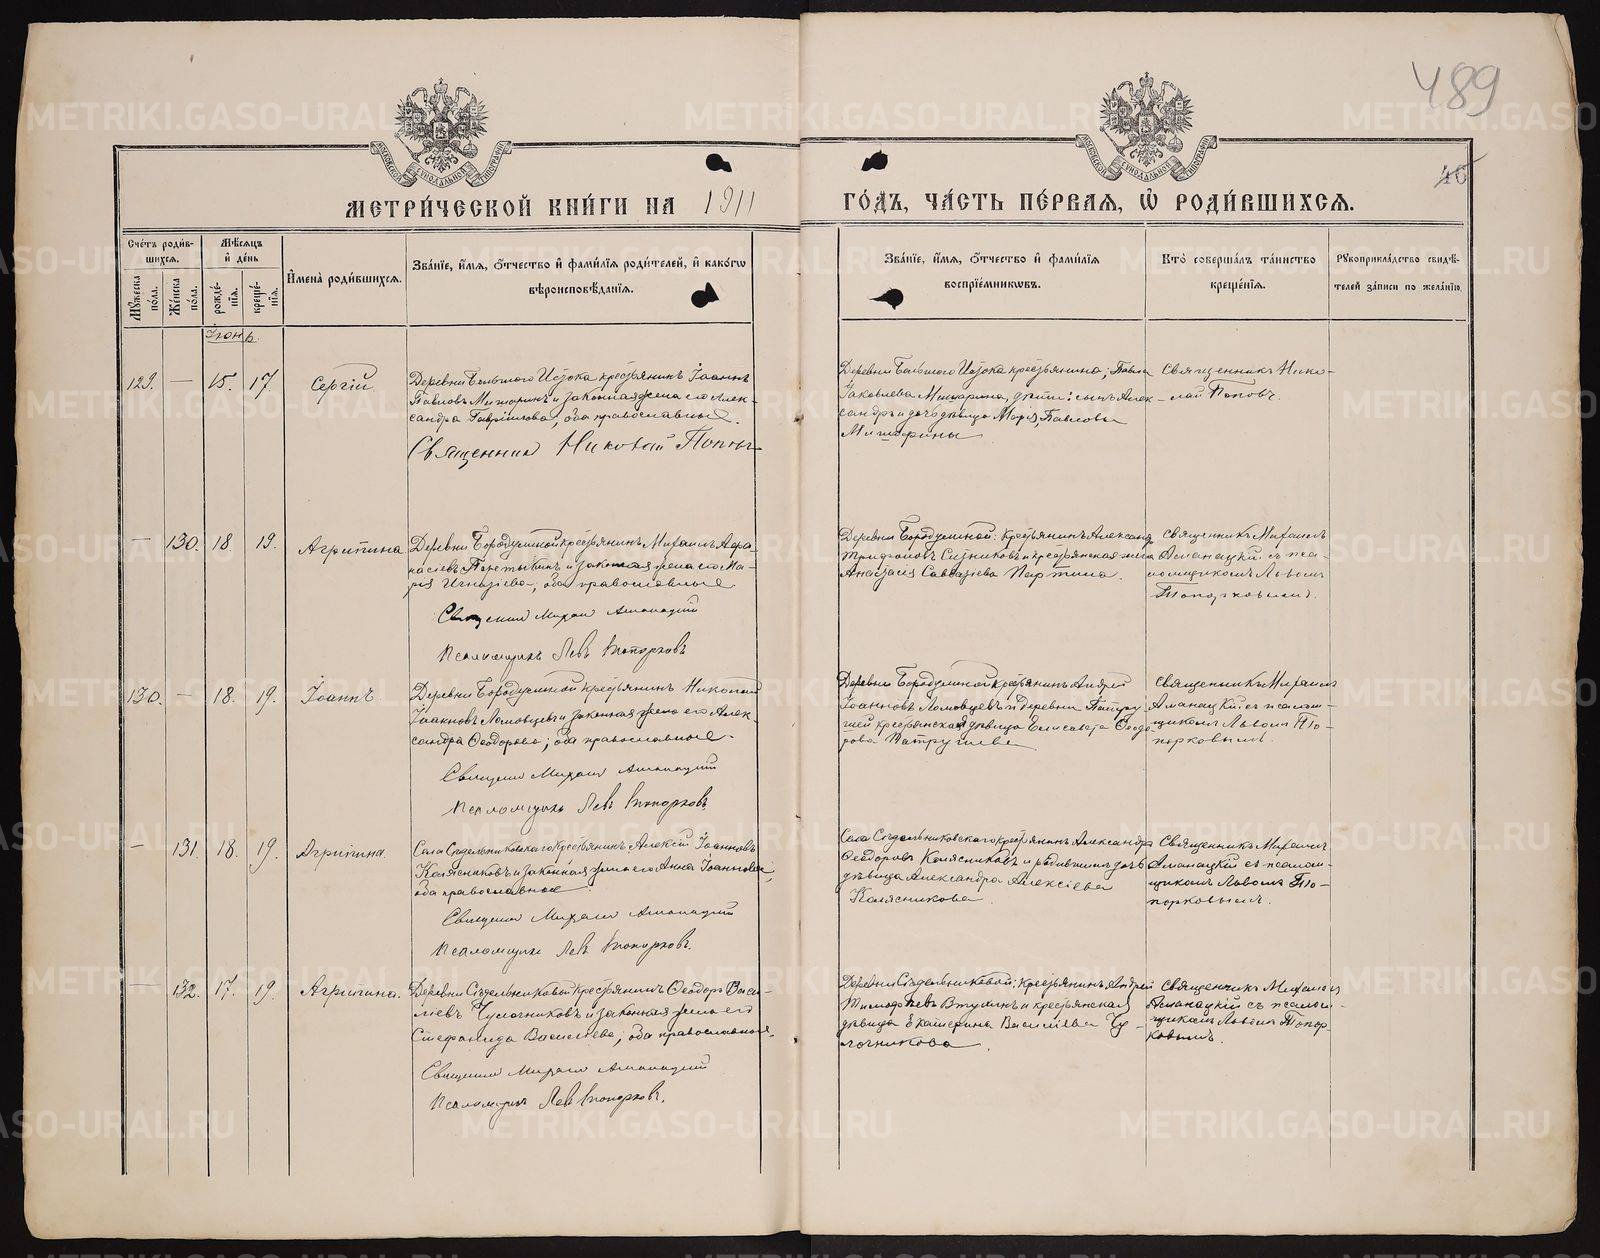 489
40
МОСКОВСКОЙ СѴНОДАЛЬНОЙ ТИПОГРАФІИ
МОСКОВСКОЙ СѴНОДАЛЬНОЙ ТИПОГРАФІИ
МЕТРИ́ЧЕСКОЙ КНИ́ГИ НА 1911 ГО́ДЪ, ЧА́СТЬ ПЕ́РВАЯ, Ѡ РОДИ́ВШИХСЯ.
Сче́тъ роди́в-
шихся.
Мꙋ́жеска по́ла.
Же́нска по́ла.
Мѣ́сяцъ
и҆ де́нь
рожде́-
нїя.
креще́-
нїя.
И҆мена̀ роди́вшихся.
Зва́нїе, и҆́мя, ѻ҆́тчество и҆ фами́лїя роди́телей, и҆ како́гѡ
вѣроисповѣ́данїя.
Зва́нїе, и҆́мя, ѻ҆́тчество и҆ фами́лїя
воспрїе́мникѡвъ.
Кто̀ соверша́лъ та́инство
креще́нїя.
Рꙋкоприкла́дство свидѣ́-
телей за́писи по жела́нїю.
Іюнь.
129. — 15. 17. Сергій
Деревни Большого Истока крестьянинъ Іоаннъ
Павловъ Мишаринъ и законная жена его Алек-
сандра Гаврилова, оба православные.
Священник Николай Попов
Деревни Большого Истока крестьянина, Павла
Іаковлева Мишарина, дѣти: сынъ Алек-
сандръ и дочь дѣвица Марія, Павловы
Мишарины
Священникъ Нико-
лай Поповъ.
— 130. 18. 19. Агрипина
Деревни Бородулиной крестьянинъ Михаилъ Афа-
насіевъ и законная жена его Ма-
рія Игнатіева, оба православные
Священник Михаил Аманацкий
Псаломщикъ Левъ Топорковъ
Деревни Бородулиной: крестьянинъ Александръ
Трифоновъ Ситниковъ и крестьянская жена
Анастасія Савватіева
Священникъ Михаилъ
Аманацкій съ пса-
ломщикомъ Львомъ
Топорковымъ.
130. — 18. 19. Іоаннъ.
Деревни Бородулиной крестьянинъ Николай
Іоанновъ Ломовцевъ и законная жена его Алек-
сандра Ѳеодорова; оба православные.
Священник Михаил Аманацкий
Псаломщикъ Левъ Топорковъ.
Деревни Бородулиной крестьянинъ Андрей
Іоанновъ Ломовцевъ и деревни Патру-
шей крестьянская дѣвица Елисавета Ѳеодо-
рова Патрушева
Священникъ Михаилъ
Аманацкій съ псалом-
щикомъ Львомъ То-
порковымъ.
— 131. 18. 19. Агрипина.
Села Сѣдельниковскаго крестьянинъ Алексій Іоанновъ
Колясниковъ и законная жена его Анна Іоаннова,
оба православные.
Священник Михаил Аманацкий
Псаломщикъ Левъ Топорковъ.
Села Сѣдельниковскаго крестьянинъ Александръ
Ѳеодоровъ Колясниковъ и родившихъ дочь
дѣвица Александра Алексіева
Колясникова.
Священникъ Михаилъ
Аманацкій съ псалом-
щикомъ Львомъ То-
порковымъ.
— 132. 17. 19. Агрипина.
Деревни Сѣдельниковой крестьянинъ Ѳеодоръ Васи-
ліевъ и законная жена его
Стефанида Васильева, оба православные.
Священник Михаил Аманацкий
Псаломщикъ Левъ Топорковъ.
Деревни Сѣдельниковой; крестьянинъ Андрей
Тимофѣевъ Втулинъ и крестьянская
дѣвица Екатерина Василіева
Священникъ Михаилъ
Аманацкій съ псалом-
щикомъ Львомъ Топор-
ковымъ.
METRIKI.GASO-URAL.RU